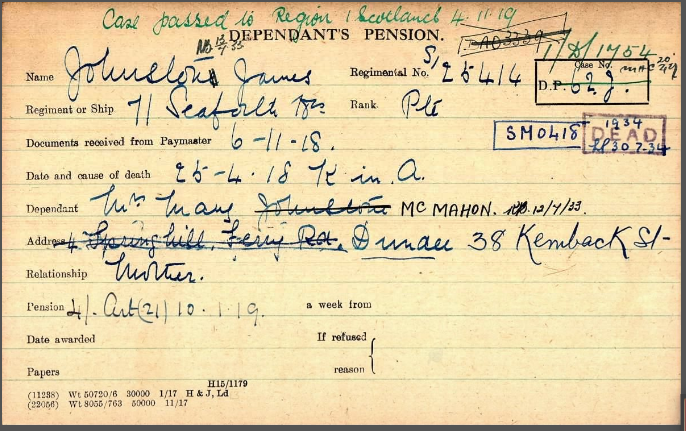 Case passed to Region 1 Scotland 4.11.19
DEPENDANT'S PENSION.
1/D/1754
Name Johnston James Regimental No. S/25414
Case No.
D.P. 62 J.
Regiment or Ship 7/ Seaforth Hrs Rank Pte
Documents received from Paymaster 6-11-18. SM0418 1934 DEAD 30.7.34
Date and cause of death 25-4-18 K in A.
Dependant Mrs Mary Johnstone MC MAHON. 12/7/33.
Address 4 Springhill, Ferry Rd, Dundee 38 Kemback St-
Relationship Mother.
Pension 4/- Art (21) 10.1.19. a week from
Date awarded If refused
reason
Papers
H15/1179
(11238) Wt 50720/6 30000 1/17 H & J, Ld
(22056) Wt 8055/763 50000 11/17